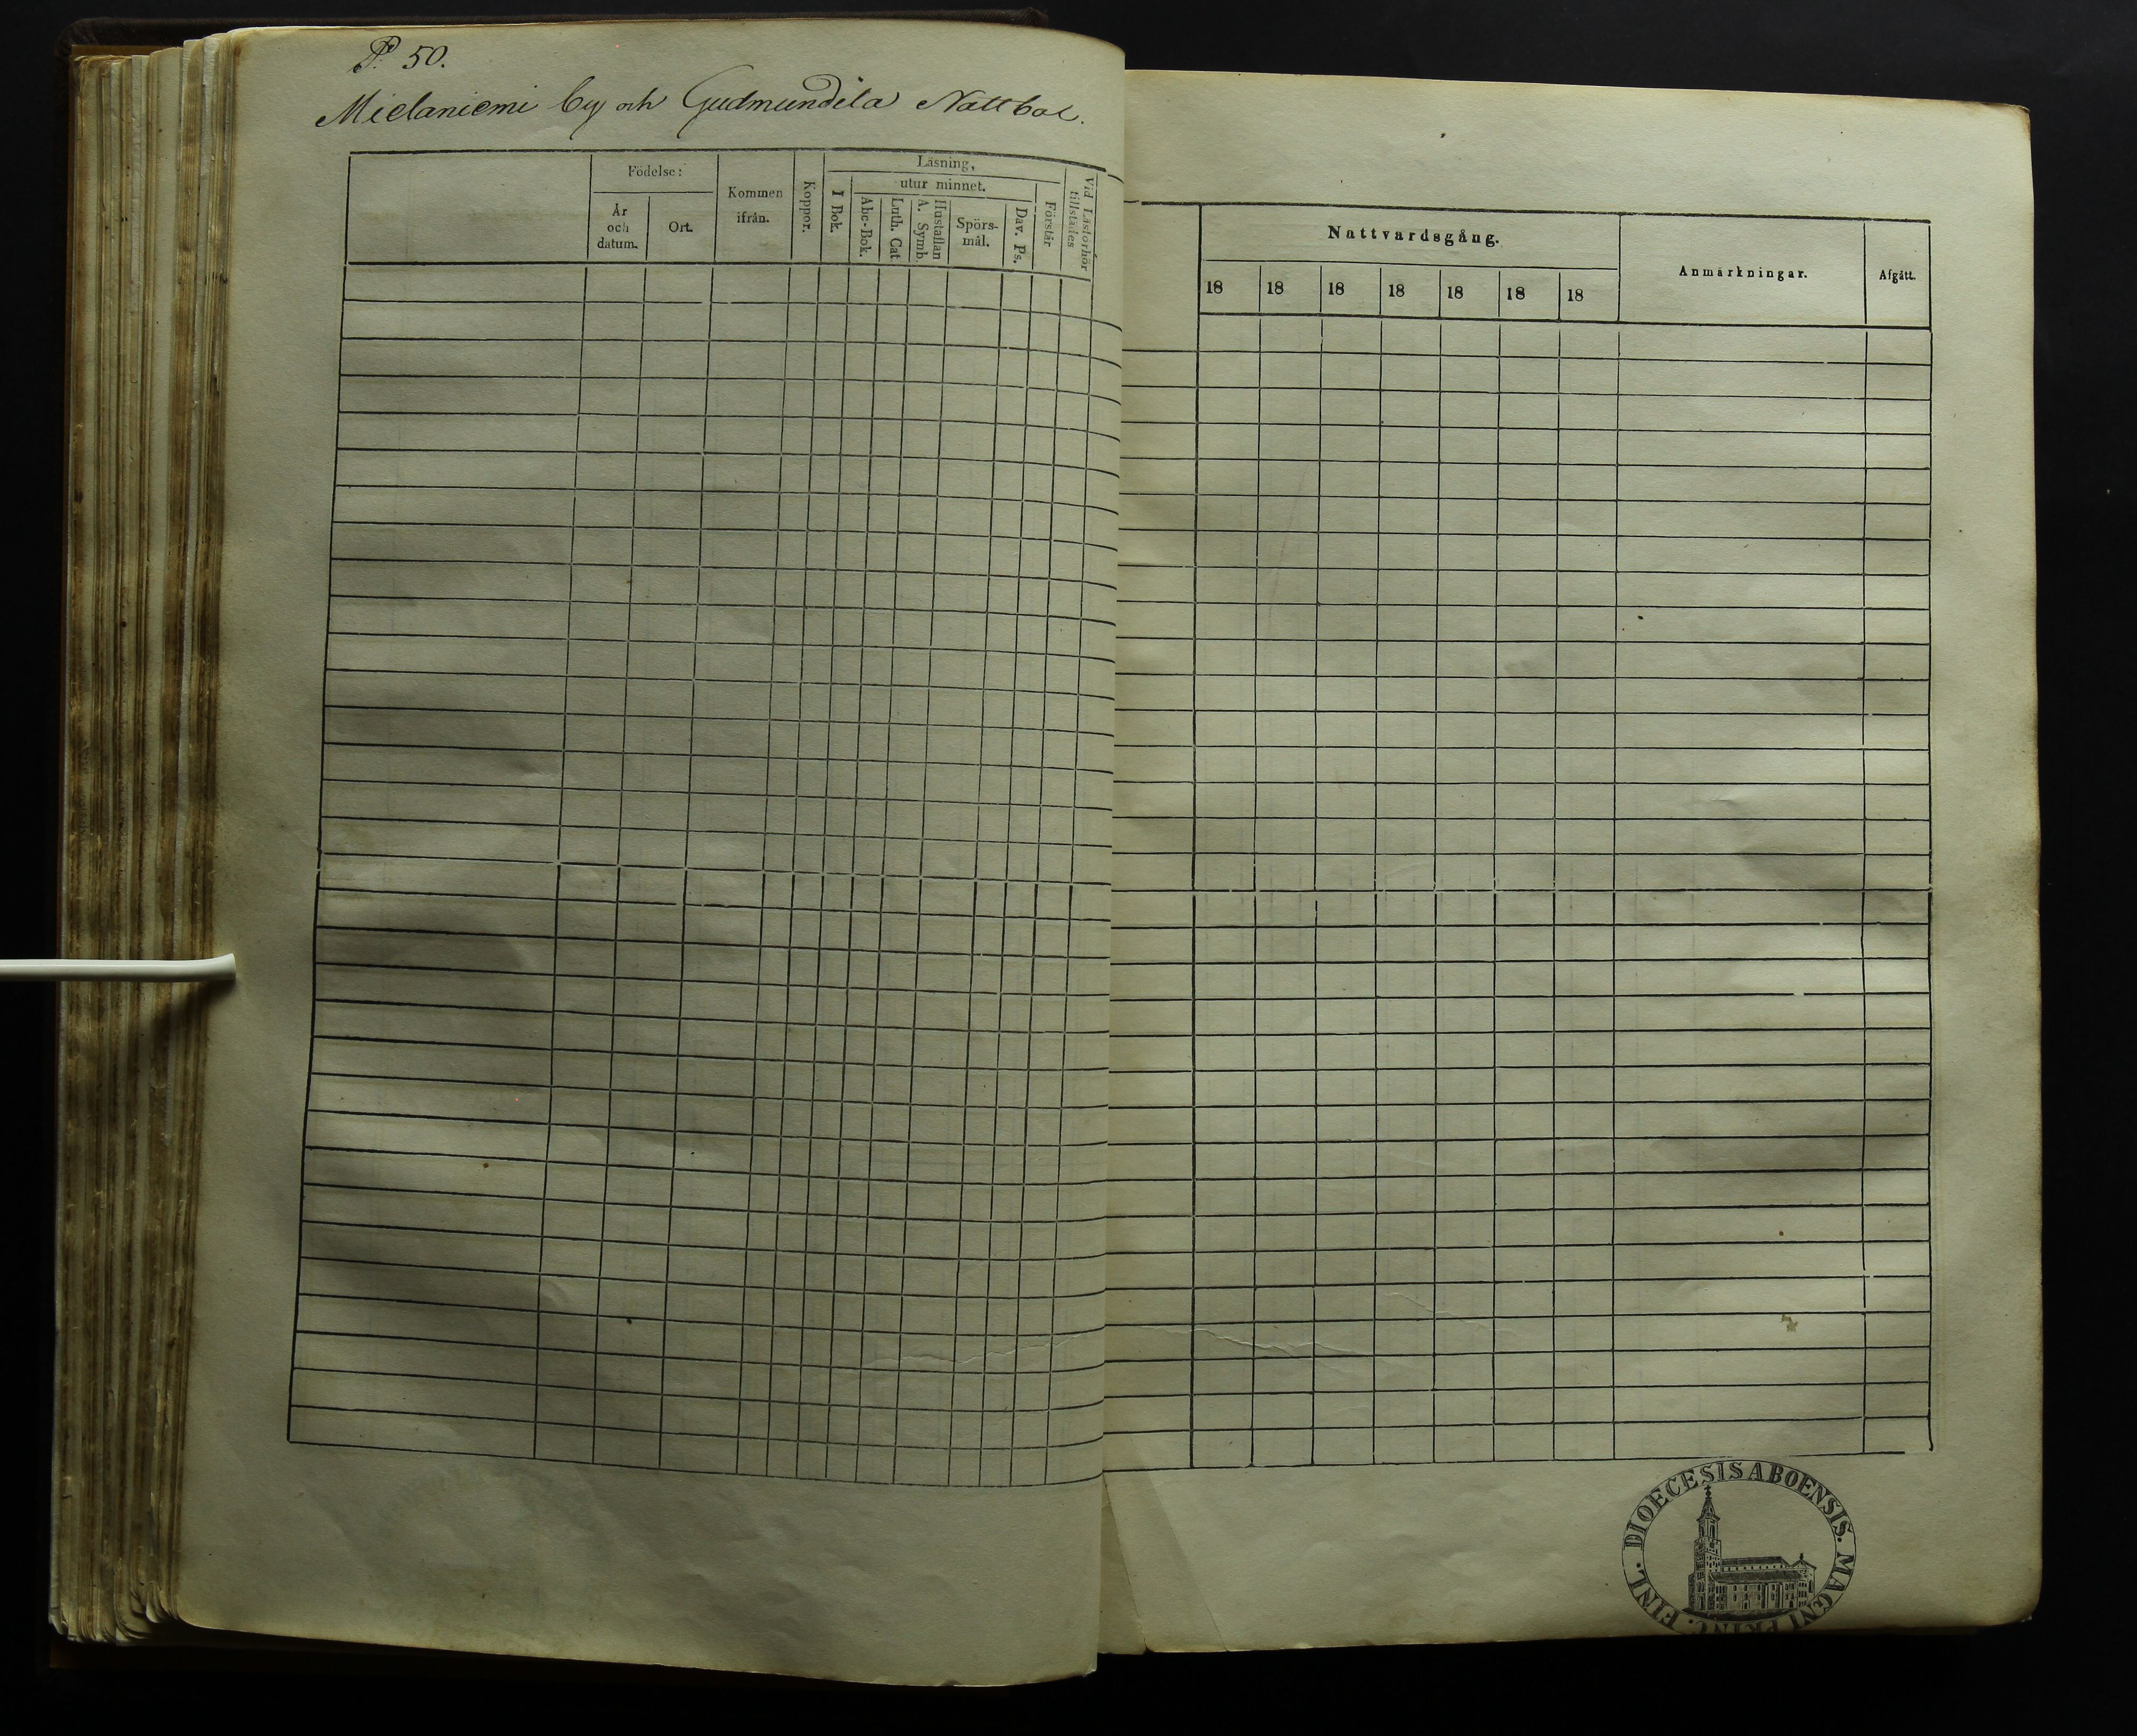 P. 50.
Mielaniemi by och Gudmundila Nattbol.
Födelse:
År
och
datum.
Ort.
Kommen
ifrån.
Koppor.
Läsning,
I Bok.
utur minnet.
Abc-Bok.
Luth. Cat
Hustaflan
A. Symb.
Spörs-
mål.
Dav. Ps.
Förstår
Vid Läsförhör
tillstädes
Nattvardsgång.
18 18 18 18 18 18 18
Anmärkningar.
Afgått.
DIOECESIS ABOENSIS. MAGNI PRINC. FINL.